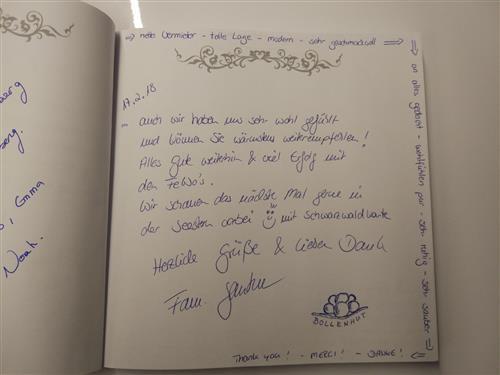 ⇒ nette Vermieter - tolle Lage - modern - sehr geschmackvoll ⇒
17.2.18
- auch wir haben uns sehr wohl gefühlt
und können Sie wärmstens weiterempfehlen!
Alles Gute weiterhin & viel Erfolg mit
den FeWo's.
Wir schauen das nächste Mal gerne in
der Season vorbei mit Schwarzwaldkarte
Herzliche Grüße & lieben Dank
Fam.
BOLLENHUT
Thank you! - MERCI! - DANKE!
⇒ an alles gedacht - wohlfühlen pur - sehr ruhig - sehr sauber ⇒
, Emma
Noah.